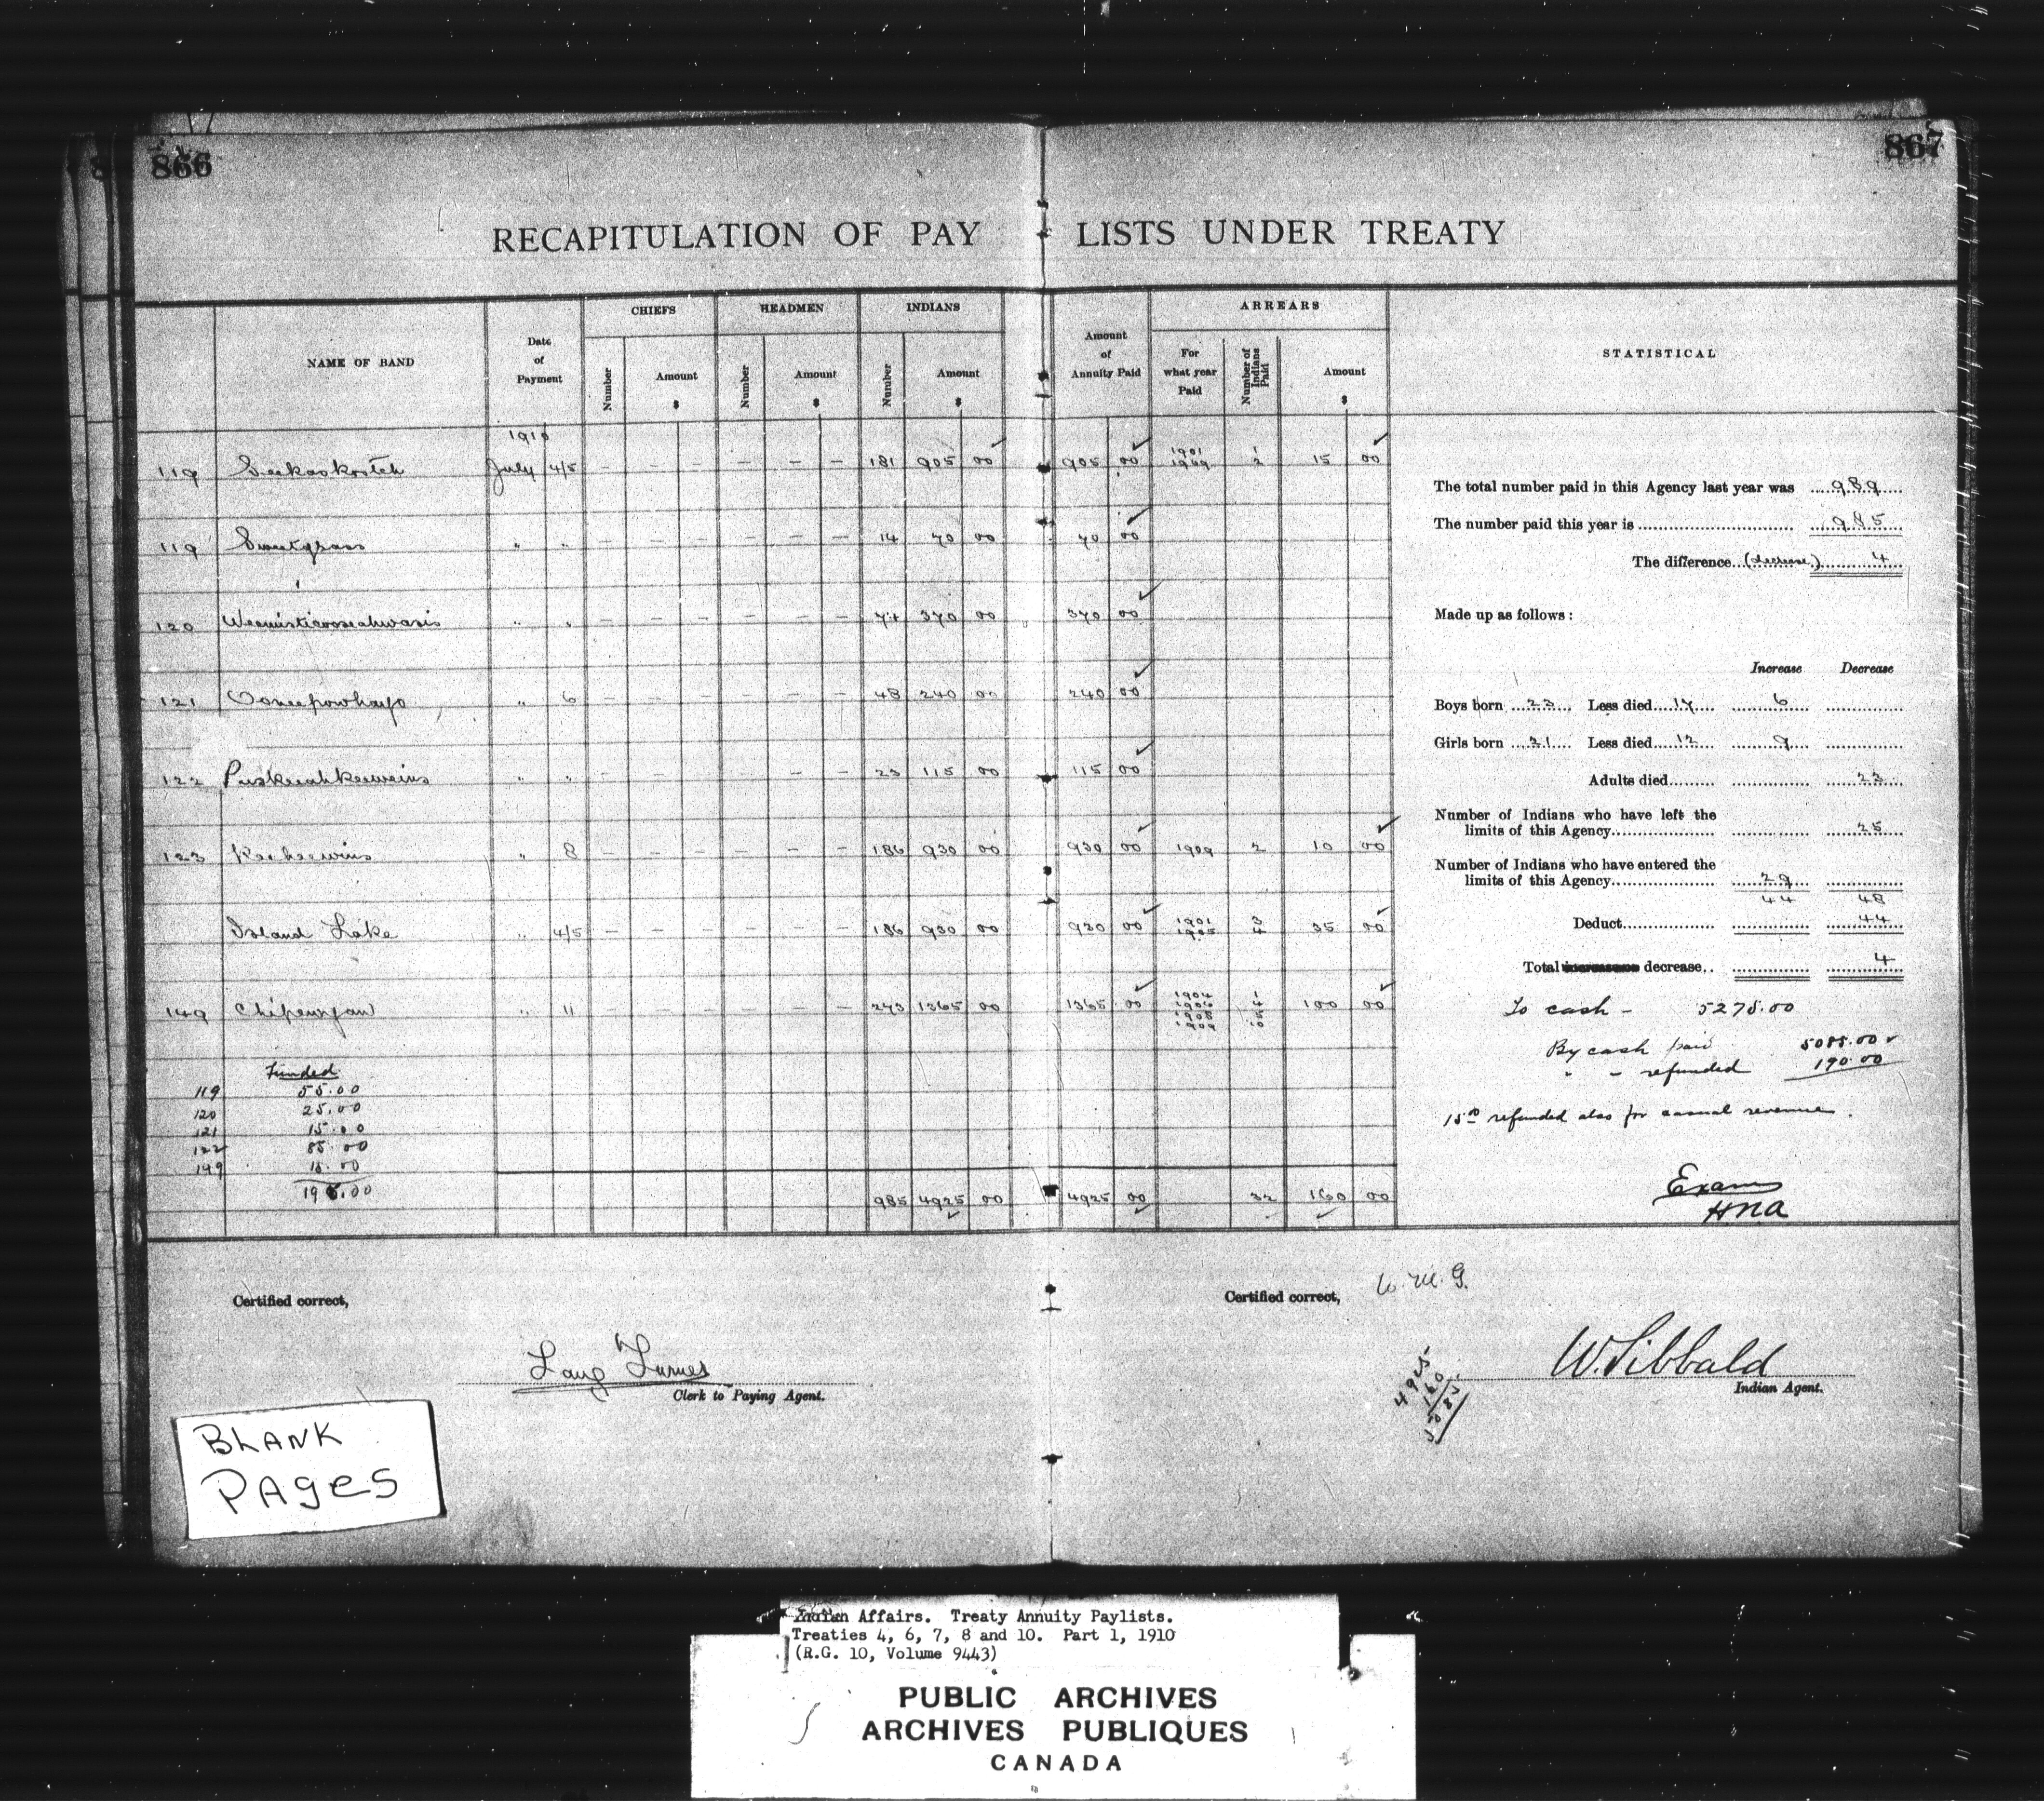 866
867
RECAPITULATION OF PAY LISTS UNDER TREATY
NAME OF BAND
Date of Payment
CHIEFS
Number
Amount $
HEADMEN
Number
Amount $
INDIANS
Number
Amount $
Amount of Annuity Paid
ARREARS
For what year Paid
Number of Indians Paid
Amount $
STATISTICAL
1910
119 Seekaskootch July 4/5 – – – – – – 181 905 00 905 00 1901 1 1909 2 15 00
119 Sweetgrass " " – – – – – – 14 70 00 70 00
120 Weemisticooseahwasis " " – – – – – – 74 370 00 370 00
121 Ooneepowhayo " 6 – – – – – – 48 240 00 240 00
122 Puskeeahkeeweins " " – – – – – – 23 115 00 115 00
123 Keeheewins " 8 – – – – – – 186 930 00 930 00 1909 2 10 00
Island Lake " 4/5 – – – – – – 186 930 00 930 00 1901 3 1905 4 35 00
149 Chipewyan " 11 – – – – – – 273 1365 00 1365 00 1904 1 1906 4 1908 1909 10 100 00
Funded
119 55.00
120 25.00
121 15.00
122 85.00
149 15.00
195.00
985 4925 00 4925 00 32 160 00
The total number paid in this Agency last year was 989
The number paid this year is 985
The difference (decrease) 4
Made up as follows:
Increase Decrease
Boys born 23 Less died 17 6
Girls born 21 Less died 12 9
Adults died 23
Number of Indians who have left the
limits of this Agency 25
Number of Indians who have entered the
limits of this Agency 29
44 48
Deduct 44
Total decrease.. 4
To cash – 5275.00
By cash paid 5085.00
" – refunded 190.00
15.00 refunded also for casual revenue.
Exam
HNA
Certified correct,
Clerk to Paying Agent.
Certified correct,
W. M. G.
4925
160
5085
W. Sibbald
Indian Agent.
BLANK
PAGES
Indian Affairs. Treaty Annuity Paylists.
Treaties 4, 6, 7, 8 and 10. Part 1, 1910
(R.G. 10, Volume 9443)
PUBLIC ARCHIVES
ARCHIVES PUBLIQUES
CANADA